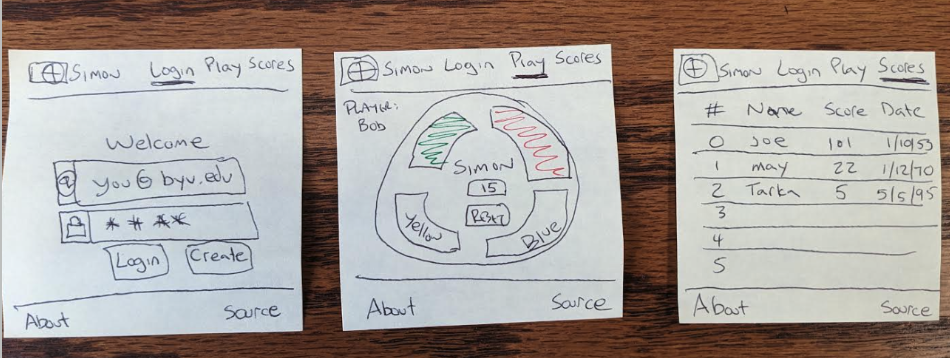 Simon Login Play Scores
Welcome
@ you@byu.edu
* * * *
Login Create
About Source
Simon Login Play Scores
Player:
Bob
Simon
15
Reset
Yellow Blue
About Source
Simon Login Play Scores
# Name Score Date
0 Joe 101 1/10/53
1 may 22 1/12/70
2 Tarka 5 5/5/95
3
4
5
About Source